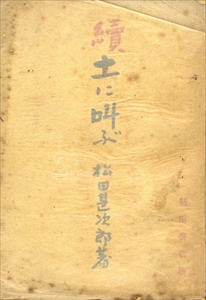 續
土に叫ぶ
松田甚次郎著